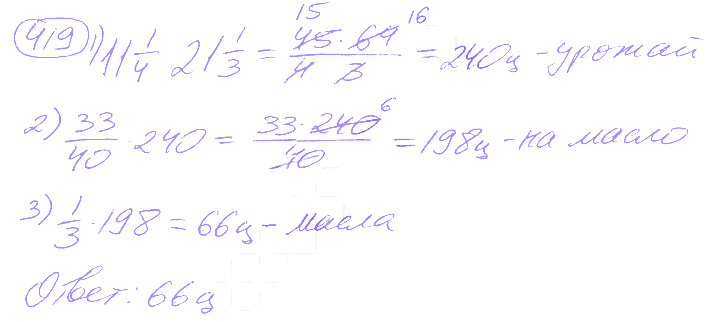 419 1) 11 1/4 · 21 1/3 = (45 · 64)/(4 · 3) = 240ц - урожай
15 16
2) 33/40 · 240 = (33 · 240)/40 = 198ц - на масло
6
3) 1/3 · 198 = 66ц - масла
Ответ: 66ц